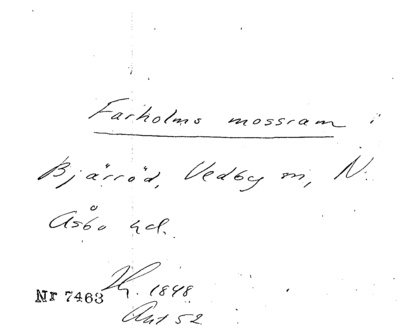 Farholms mossram i
Bjärröd, Vedby m, N.
Åsbo hd.
Nr 7463
1848
Akt 52